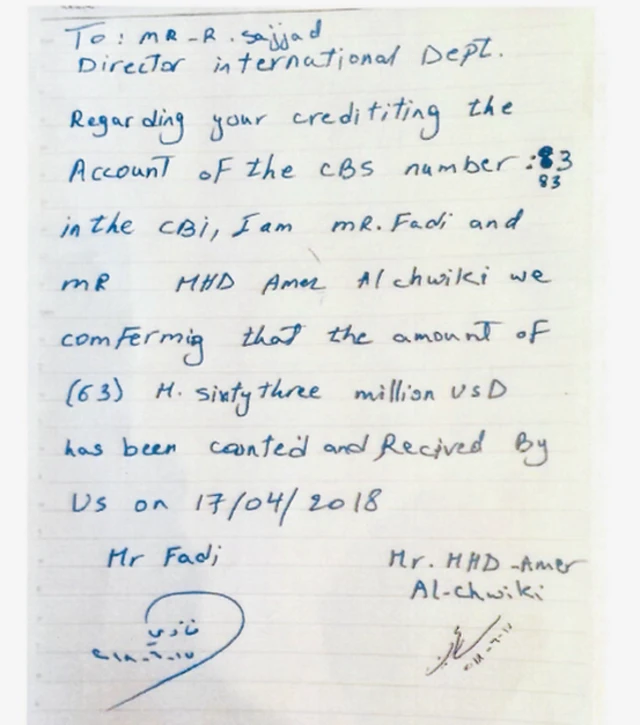 To: MR-R. sajjad
Director international Dept.
Regarding your credititing the
Account of the CBS number: 83
83
in the CBI, I am MR. Fadi and
MR MHD Amer Alchwiki we
comfermig that the amount of
(63) M. sixty three million USD
has been counted and Recived By
Us on 17/04/2018
Mr Fadi
Mr. MHD-Amer
Al-chwiki